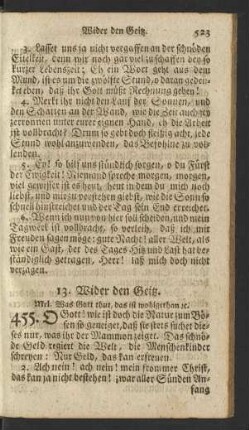 Wider den Geitz. 523
3. Lasset uns ja nicht vergaffen an der schnöden
Eitelkeit, denn wir noch gar viel zuschaffen bey so
kurtzer Lebenszeit; Eh ein Wort geht aus dem
Mund, ist es um die zwölfte Stund, o daran geden-
cket eben, daß ihr Gott müßt Rechnung geben!
4. Merkt ihr nicht den Lauf der Sonnen, und
den Schatten an der Wand, wie die Zeit auch ist
zerronnen unter eurer eignen Hand, eh die Arbeit
ist vollbracht? Drum so gebt doch fleißig acht, jede
Stund wohl anzuwenden, das Befohlne zu vol-
lenden.
5. Ey! so hilf uns stündlich sorgen, o du Fürst
der Ewigkeit! Niemand spreche morgen, morgen,
viel gewisser ist es heut,
schnell hinstreichen und der Tag sein End erreichet.
6. Wenn ich nun von hier soll scheiden, und mein
Tagwerk ist vollbracht, so verleih, daß ich mit
Freuden sagen möge: gute Nacht! aller Welt, als
wie ein Gast, der des Tages Hitz und Last hat be-
ständiglich getragen, Herr! laß mich doch nicht
verzagen.
13. Wider den Geitz.
Mel. Was Gott thut, das ist wohlgethan ꝛc.
455. O Gott! wie ist doch die Natur zum Bö-
sen so geneiget, daß sie stets suchet die-
ses nur, was ihr der Mammon zeiget. Das schnö-
de Geld regiert die Welt, die Menschenkinder
schreyen: Nur Geld, das kan erfreuen.
2. Ach nein! ach nein! mein frommer Christ,
das kan ja nicht bestehen! zwar aller Sünden An-
fang